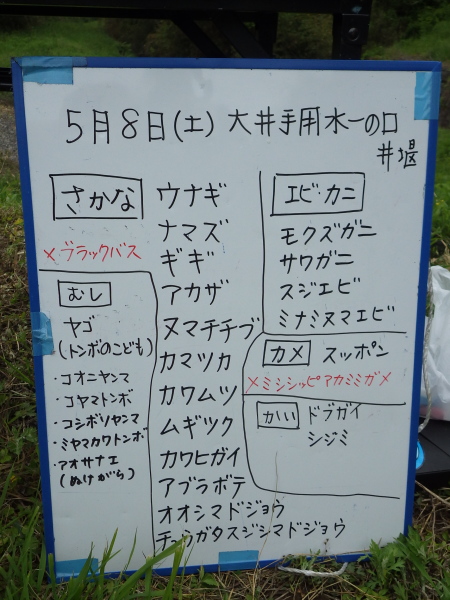 5月8日(土) 大井手用水一の口
井堰
さかな
×ブラックバス
ウナギ
ナマズ
ギギ
アカザ
ヌマチチブ
カマツカ
カワムツ
ムギツク
カワヒガイ
アブラボテ
オオシマドジョウ
チュウガタスジシマドジョウ
むし
ヤゴ
(トンボのこども)
・コオニヤンマ
・コヤマトンボ
・コシボソヤンマ
・ミヤマカワトンボ
・アオサナエ
(ぬけがら)
エビ・カニ
モクズガニ
サワガニ
スジエビ
ミナミヌマエビ
カメ スッポン
×ミシシッピアカミミガメ
かい ドブガイ
シジミ